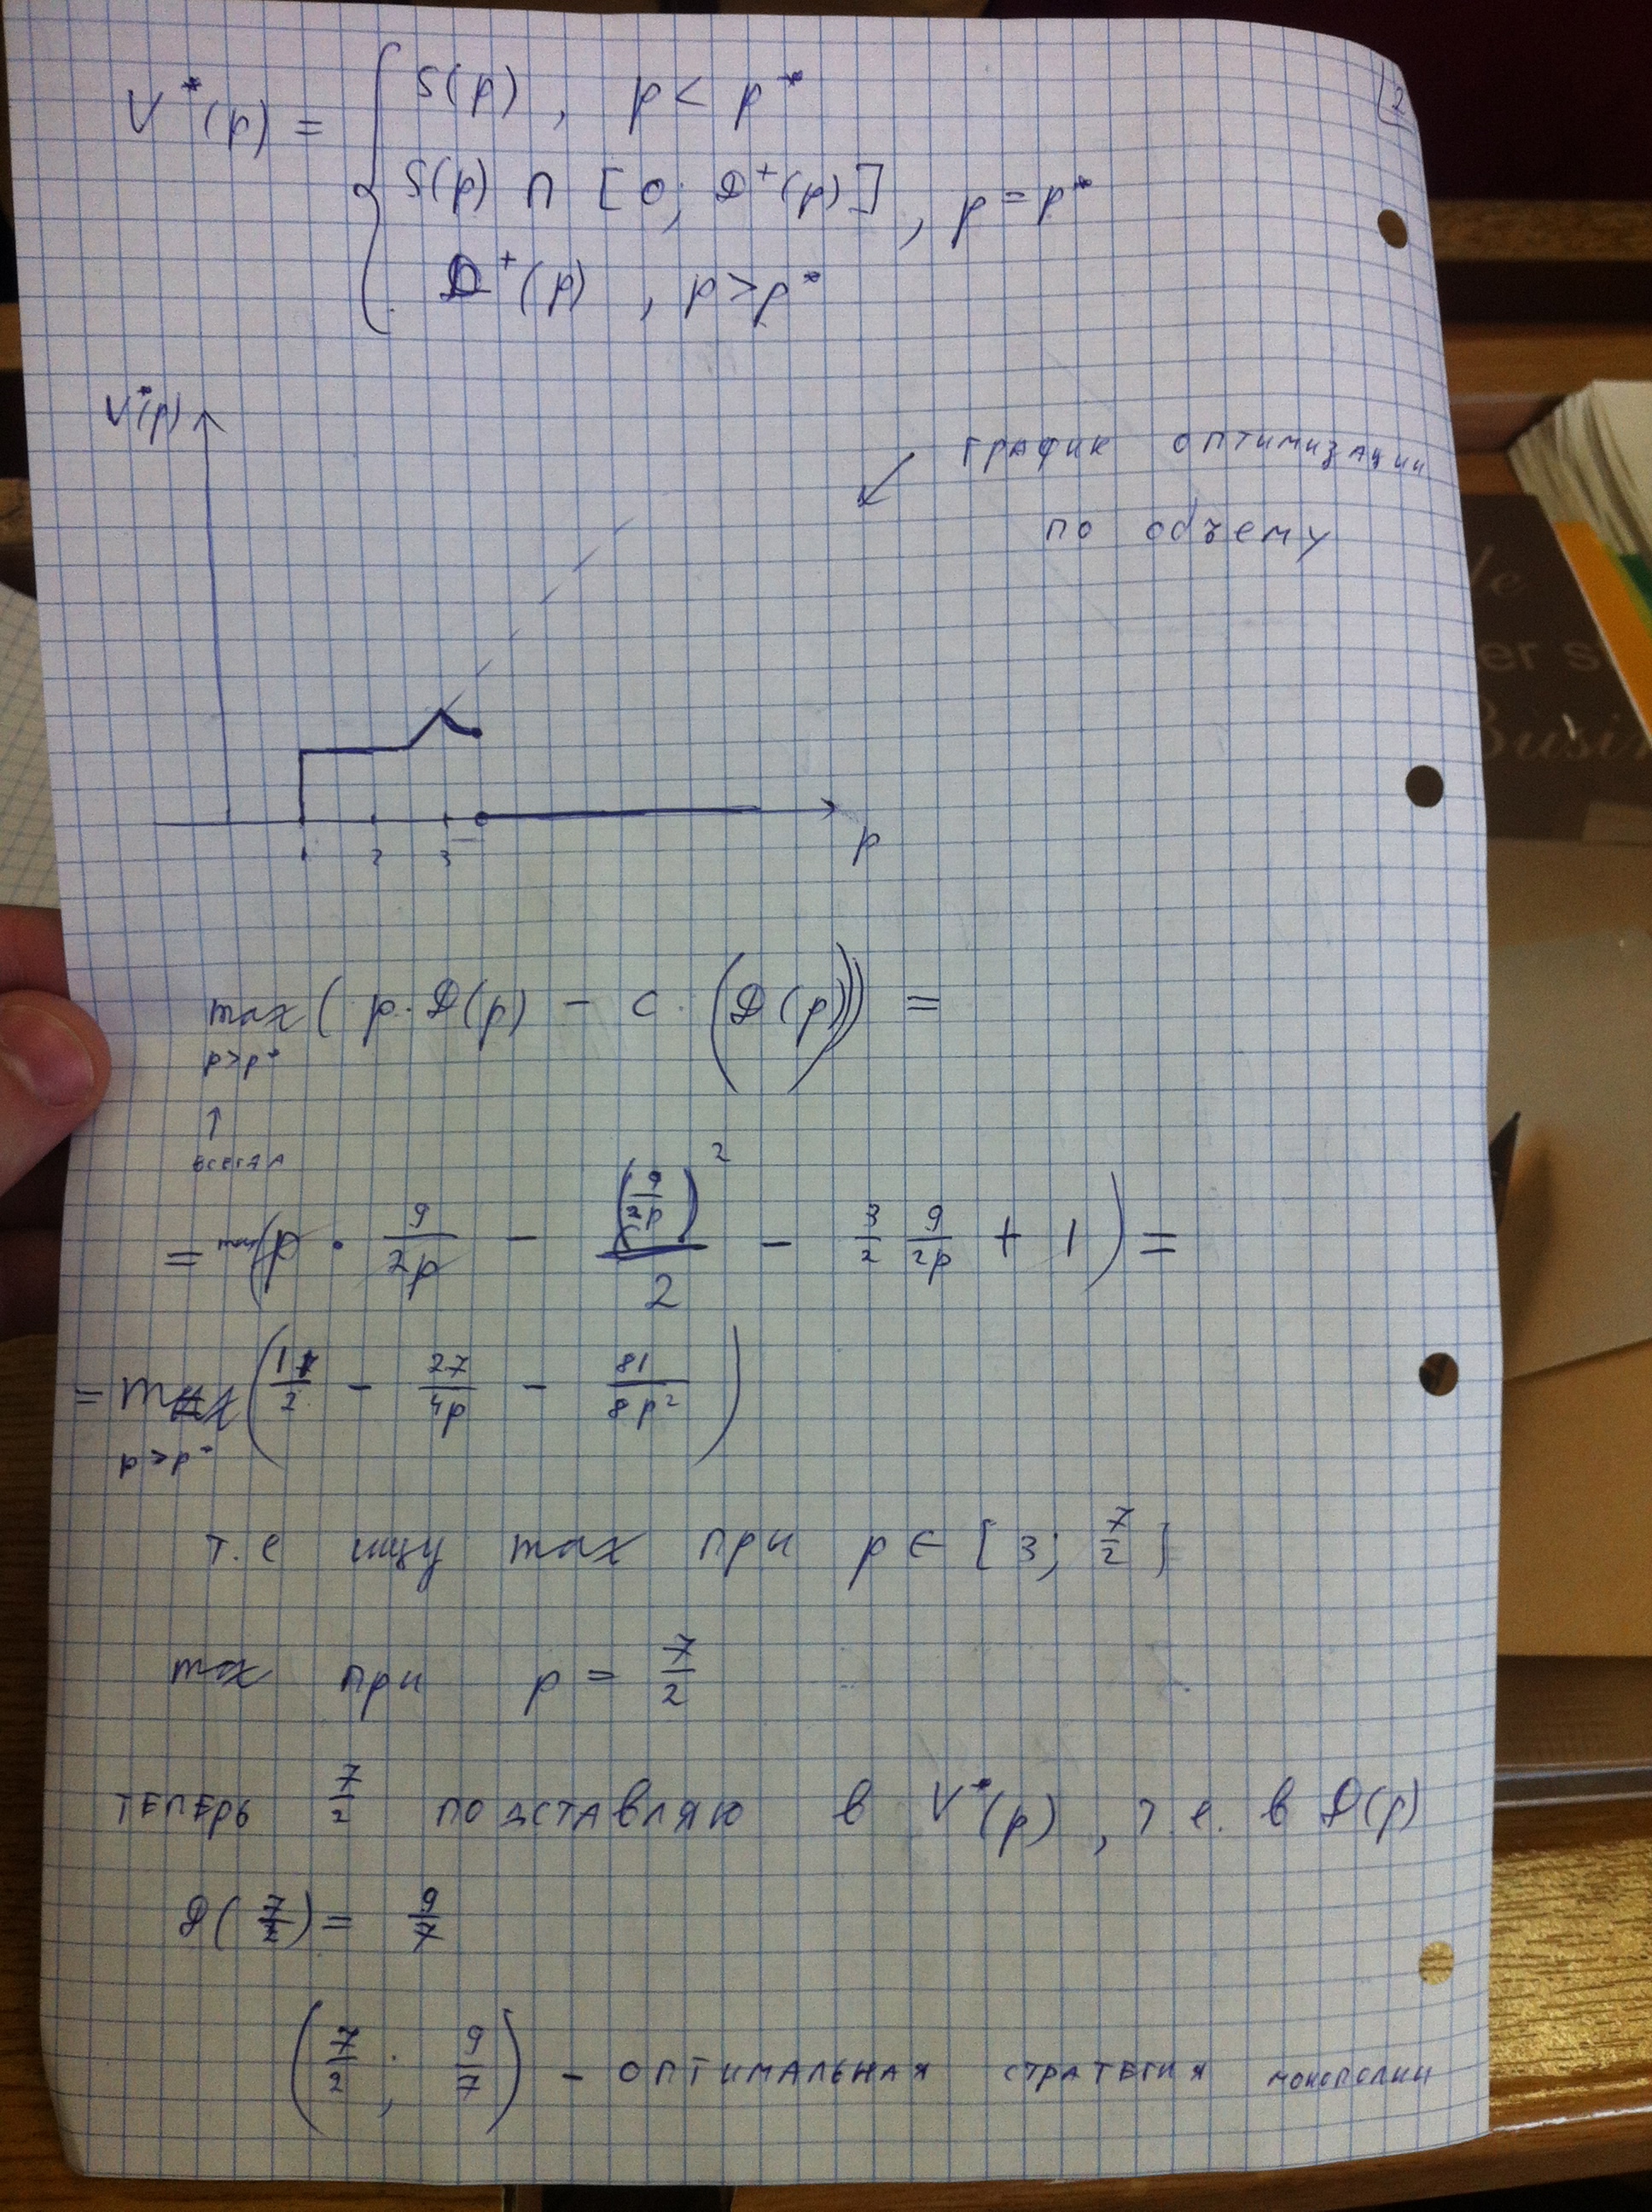 2
V*(p) = { S(p), p < p*
S(p) ∩ [0; D⁺(p)], p = p*
D⁺(p), p > p*
V*(p)
график оптимизации
по объему
1 2 3
p
max ( p · D(p) − c · (D(p))) =
p>p*
↑
всегда
= max(p · 9/2p − (9/2p)²/2 − 3/2 9/2p + 1) =
= max (11/2 − 27/4p − 81/8p²)
p>p*
т.е ищу max при p ∈ [3; 7/2]
max при p = 7/2
теперь 7/2 подставляю в V*(p), т.е. в D(p)
D(7/2) = 9/7
(7/2; 9/7) - оптимальная стратегия монополии
er s
Busi